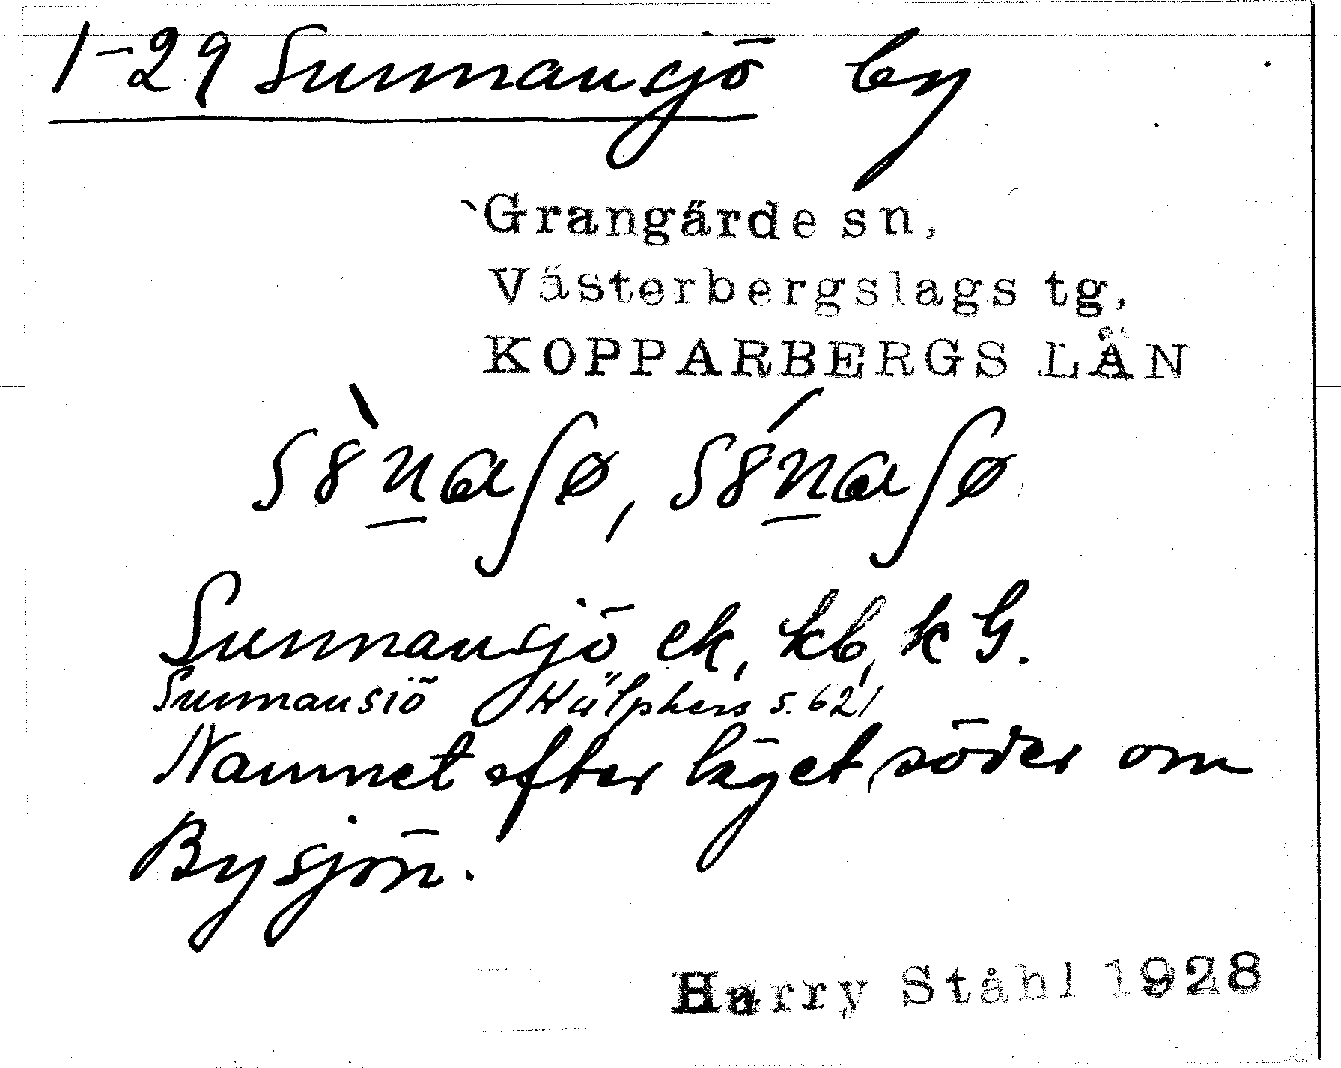 1-29 Sunnansjö by
Grangärde sn,
Västerbergslags tg,
KOPPARBERGS LÄN
Sunnansjö ek, kb, k G.
Sunnansiö Hülphers s. 621
Namnet efter läget söder om
Bysjön.
Harry Ståhl 1928